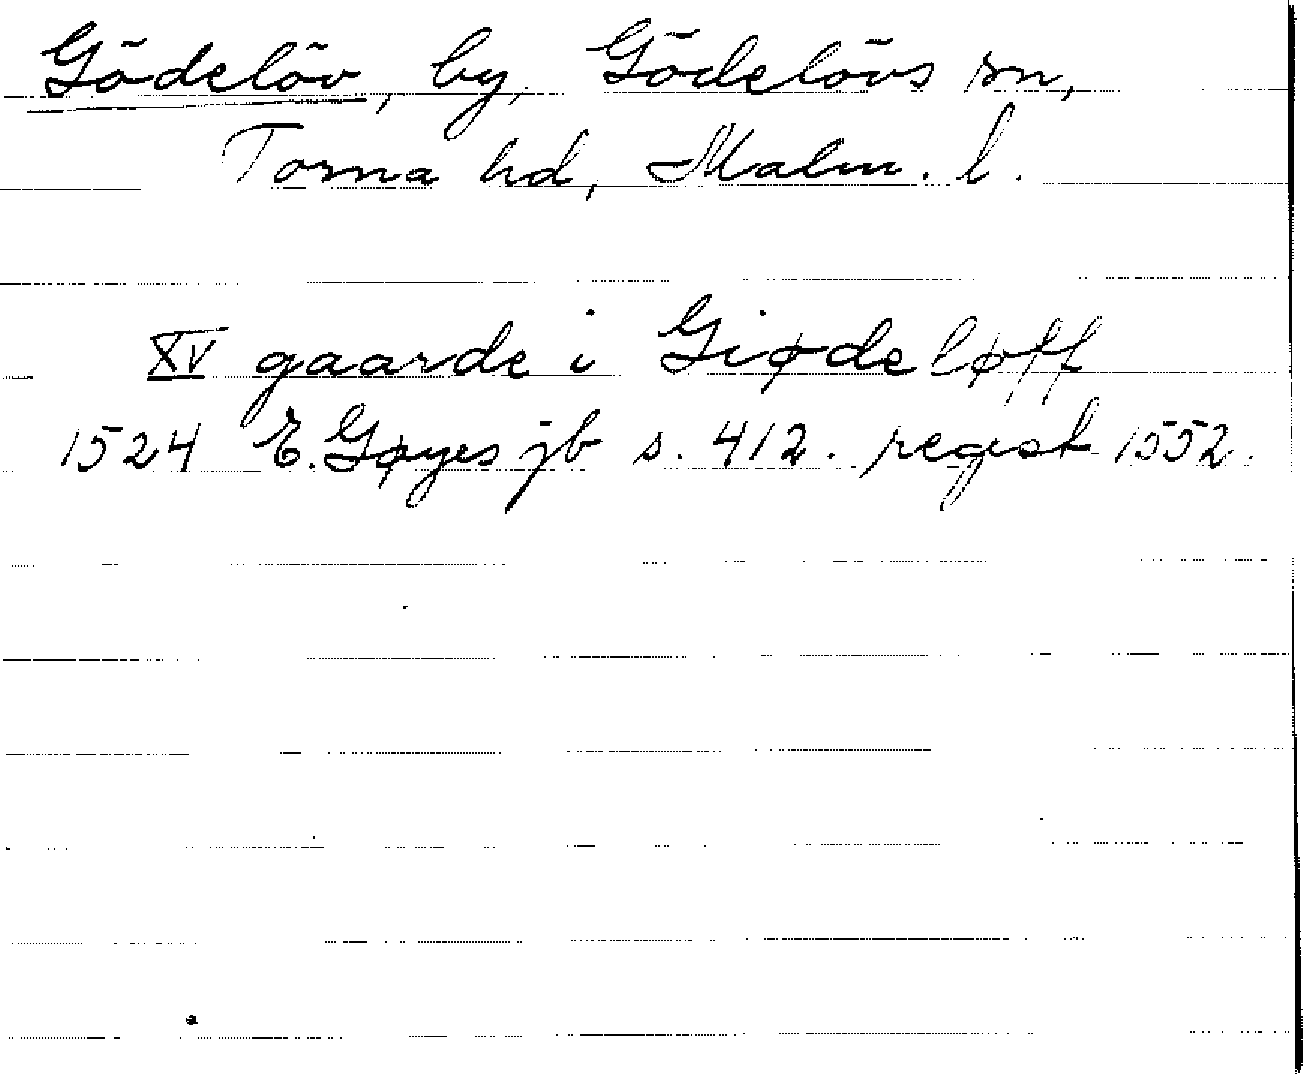 Gödelöv, by, Gödelövs sn,
Torna hd, Malm. l.
XV gaarde i Giødeløff
1524 E. Gøyes jb s. 412. regist 1552.